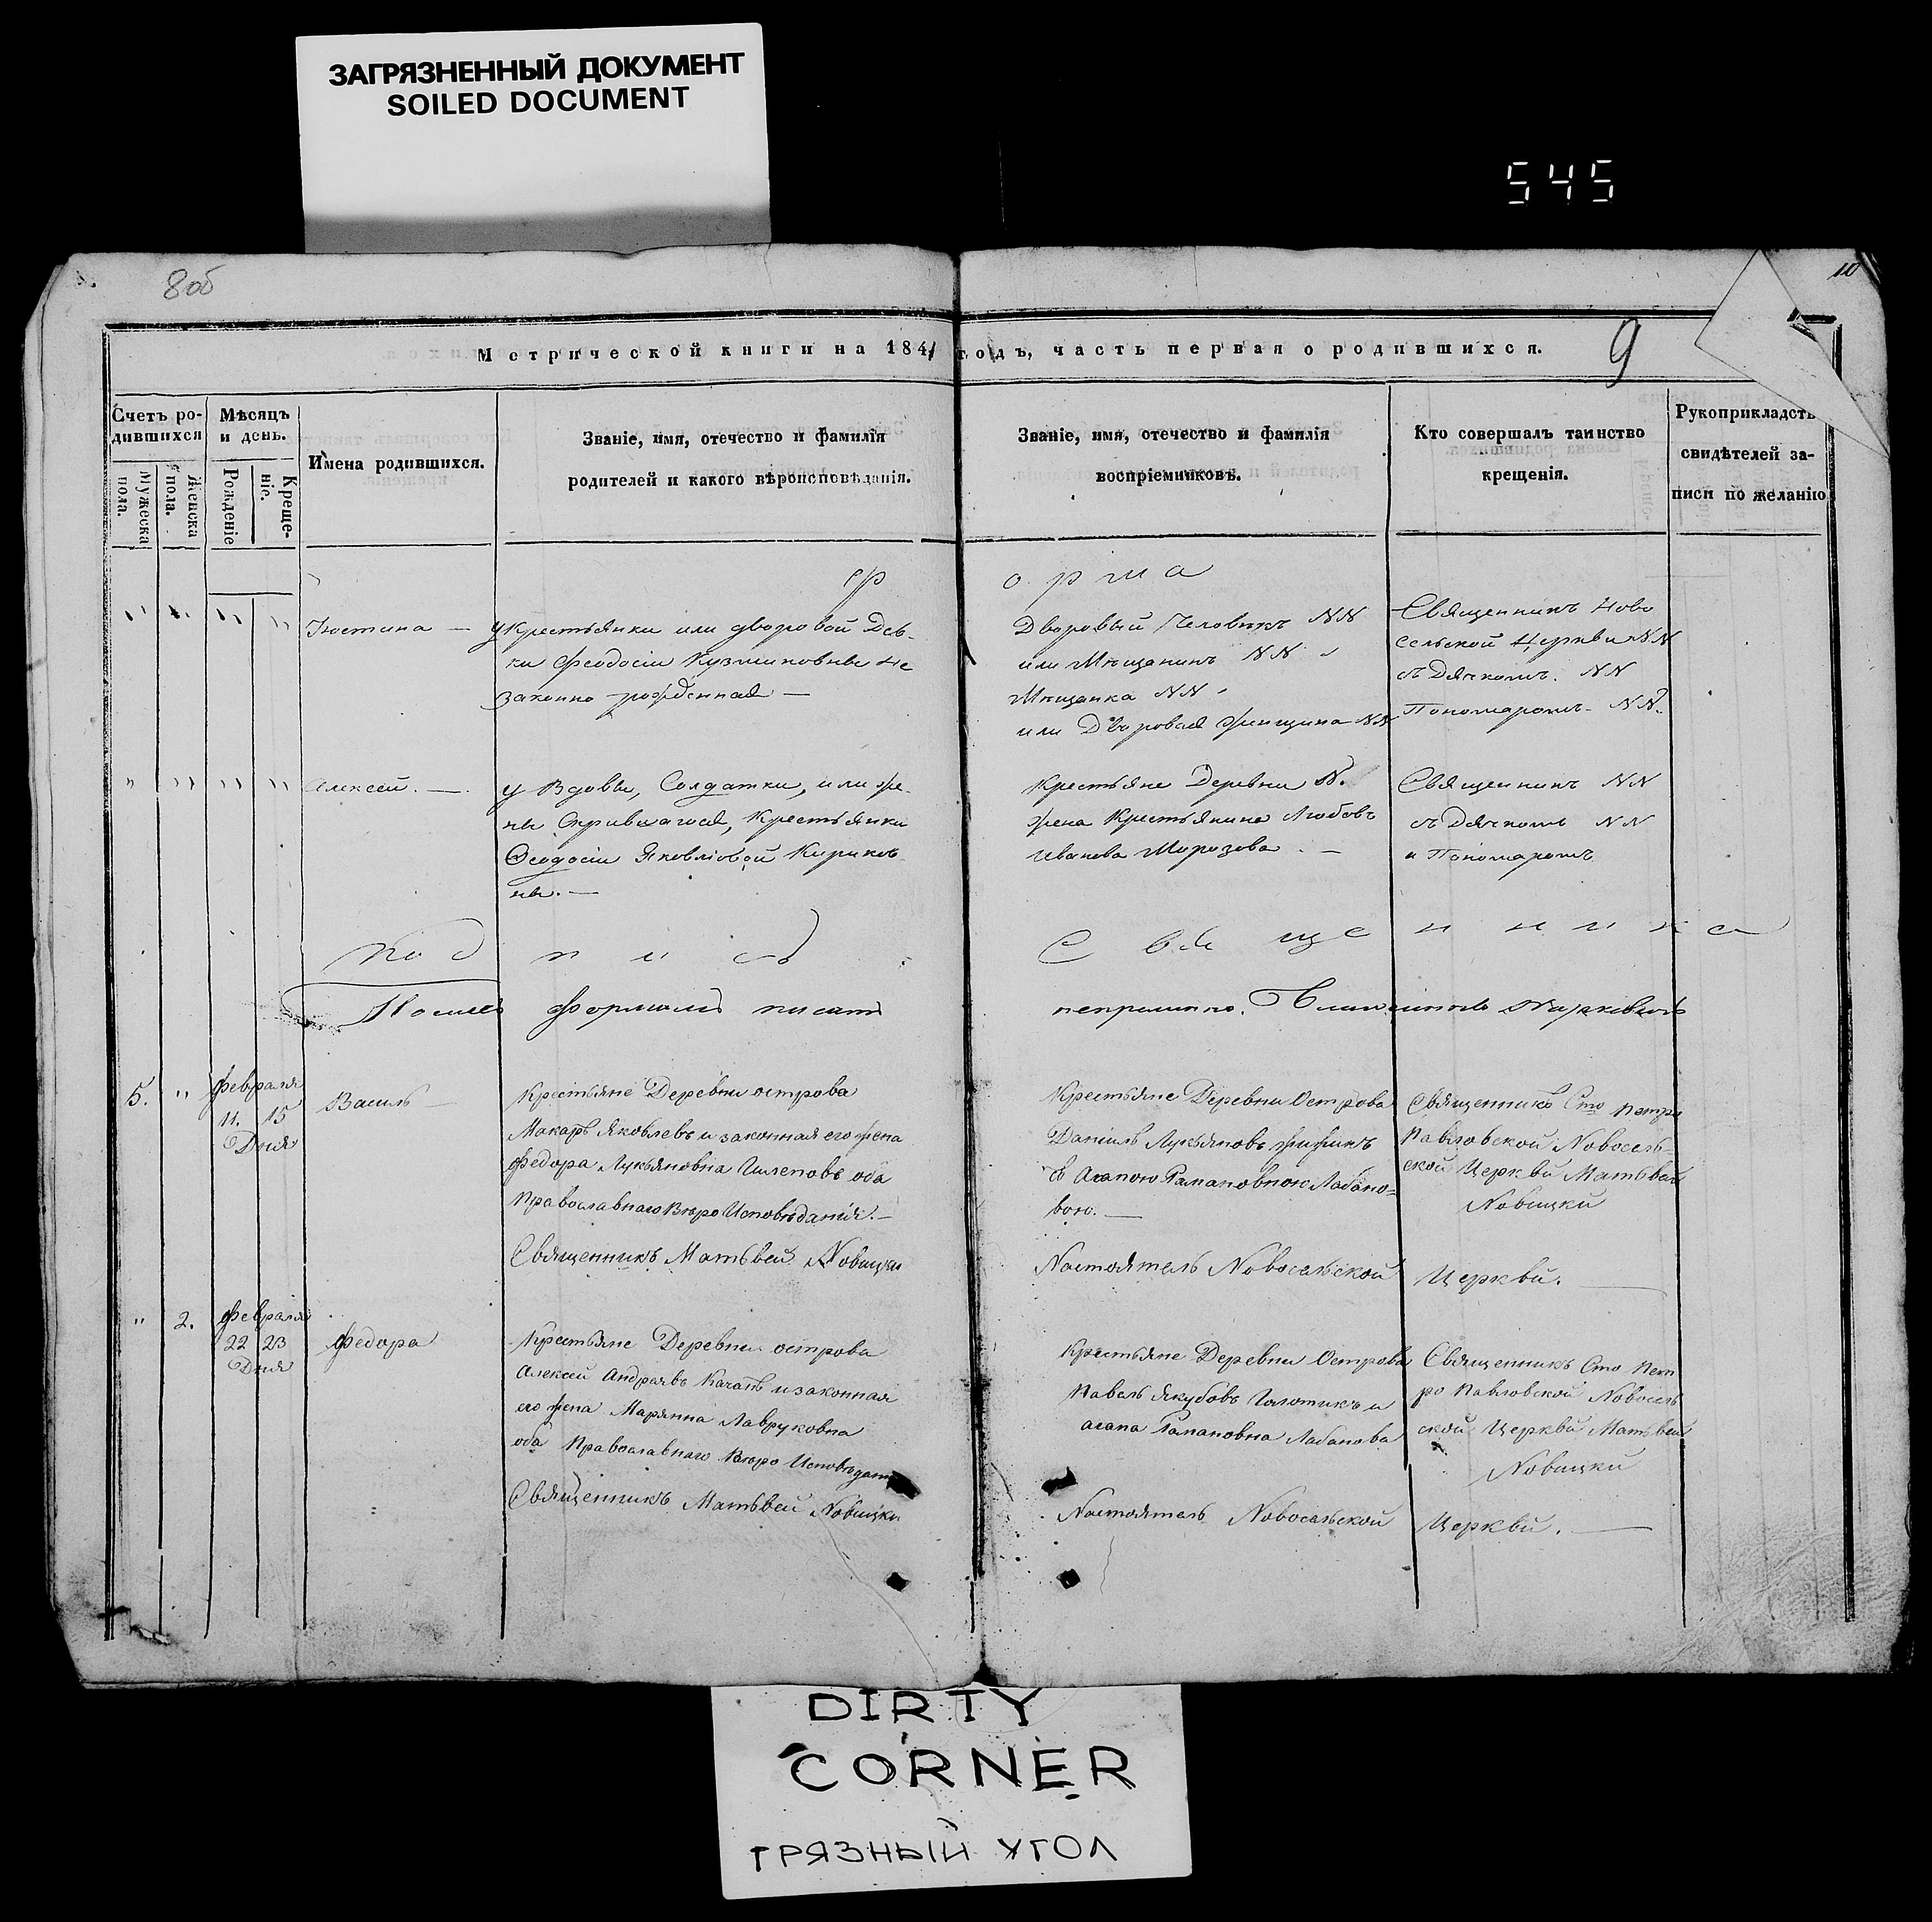 ЗАГРЯЗНЕННЫЙ ДОКУМЕНТ
SOILED DOCUMENT
545
8об
10
9
Метрической книги на 1841 годъ, часть первая о родившихся.
Счетъ ро-
дившихся
Мужеска пола.
Женска пола.
Мѣсяцъ
и день.
Рожденіе
Креще-
ніе.
Имена родившихся.
Званіе, имя, отечество и фамилія
родителей и какого вѣроисповѣданія.
Званіе, имя, отечество и фамилія
воспріемниковъ.
Кто совершалъ таинство
крещенія.
Рукоприкладств
свидѣтелей за-
писи по желанію
Ф о р м а
Іюстина —
У крестьянки или дворовой Дев-
ки Феодосіи Кузминовны не
законно рожденная —
Дворовый Человѣкъ NN
или Мѣщанинъ NN
Мѣщанка NN
или Дворовая женщина NN
Священникъ Ново
сельской Церкви NN
съ Дячкомъ. NN
Пономаромъ NN.
Алексей. —
У Вдовы, Солдатки, или же-
ны скрившагося, Крестьянки
Феодосіи Яковлювой Кириков
ны. —
Крестьяне Деревни N.
жена Крестьянина Любовь
Иванова Морозова. —
Священникъ NN
съ Дячкомъ NN
и Пономаромъ
Под п и сь С в я щ е н н и к а
формамъ писать
5. "
Февраля
11. 15
Дня
Василь —
Крестьяне Деревни острова
Макаръ Яковлевъ и законная его жена
Федора Лукьяновна оба
Православнаго Вѣро Исповѣданія. —
Священникъ Матьвей Новицки
Крестьяне Деревни Острова
Даніилъ Лукьяновъ
съ Агапою Рамановною Лабано=
вою. —
Настоятель Новосельской Церкви. —
Священникъ Сто Петро
Павловской Новосель-
ской Церкви Матьвей
Новицки
" 2.
Февраля
22 23
Дня
Федора
Крестьяне Деревни острова
Алексей Андреевъ Качанъ и законная
его жена Марянна Лавруковна
оба Православнаго Вѣро Исповѣдан
Священникъ Матьвей Новицки
Крестьяне Деревни Острова
Павелъ Якубовъ и
агапа Рамановна Лабанова
Настоятель Новосельской Церкви. —
Священникъ Сто Пет
ро Павловской Новосель
ской Церкви Матьвей
Новицки
DIRTY
CORNER
ГРЯЗНЫЙ УГОЛ